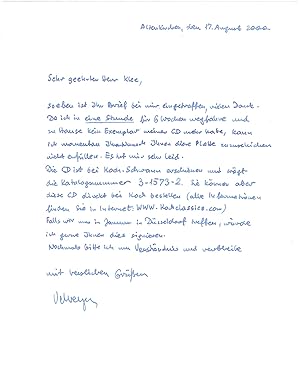 Altenkirchen, den 17. August 2000.
Sehr geehrter Herr Klee,
soeben ist Ihr Brief bei mir eingetroffen, vielen Dank.
Da ich in eine Stunde für 6 Wochen wegfahre und
zu Hause kein Exemplar meiner CD mehr habe, kann
ich momentan Ihren Wunsch Ihnen diese Platte zuzuschicken
nicht erfüllen. Es tut mir sehr leid.
Die CD ist bei Koch-Schwann erschienen und trägt
die Katalognummer 3-1573-2. Sie können aber
diese CD direkt bei Koch bestellen (alle Informationen
finden Sie in Internet: WWW.Kochclassics.com)
Falls wir uns in Januar in Düsseldorf treffen, würde
ich gerne Ihnen dies signieren.
Nochmals bitte ich um Verständnis und verbleibe
mit herzlichen Grüßen